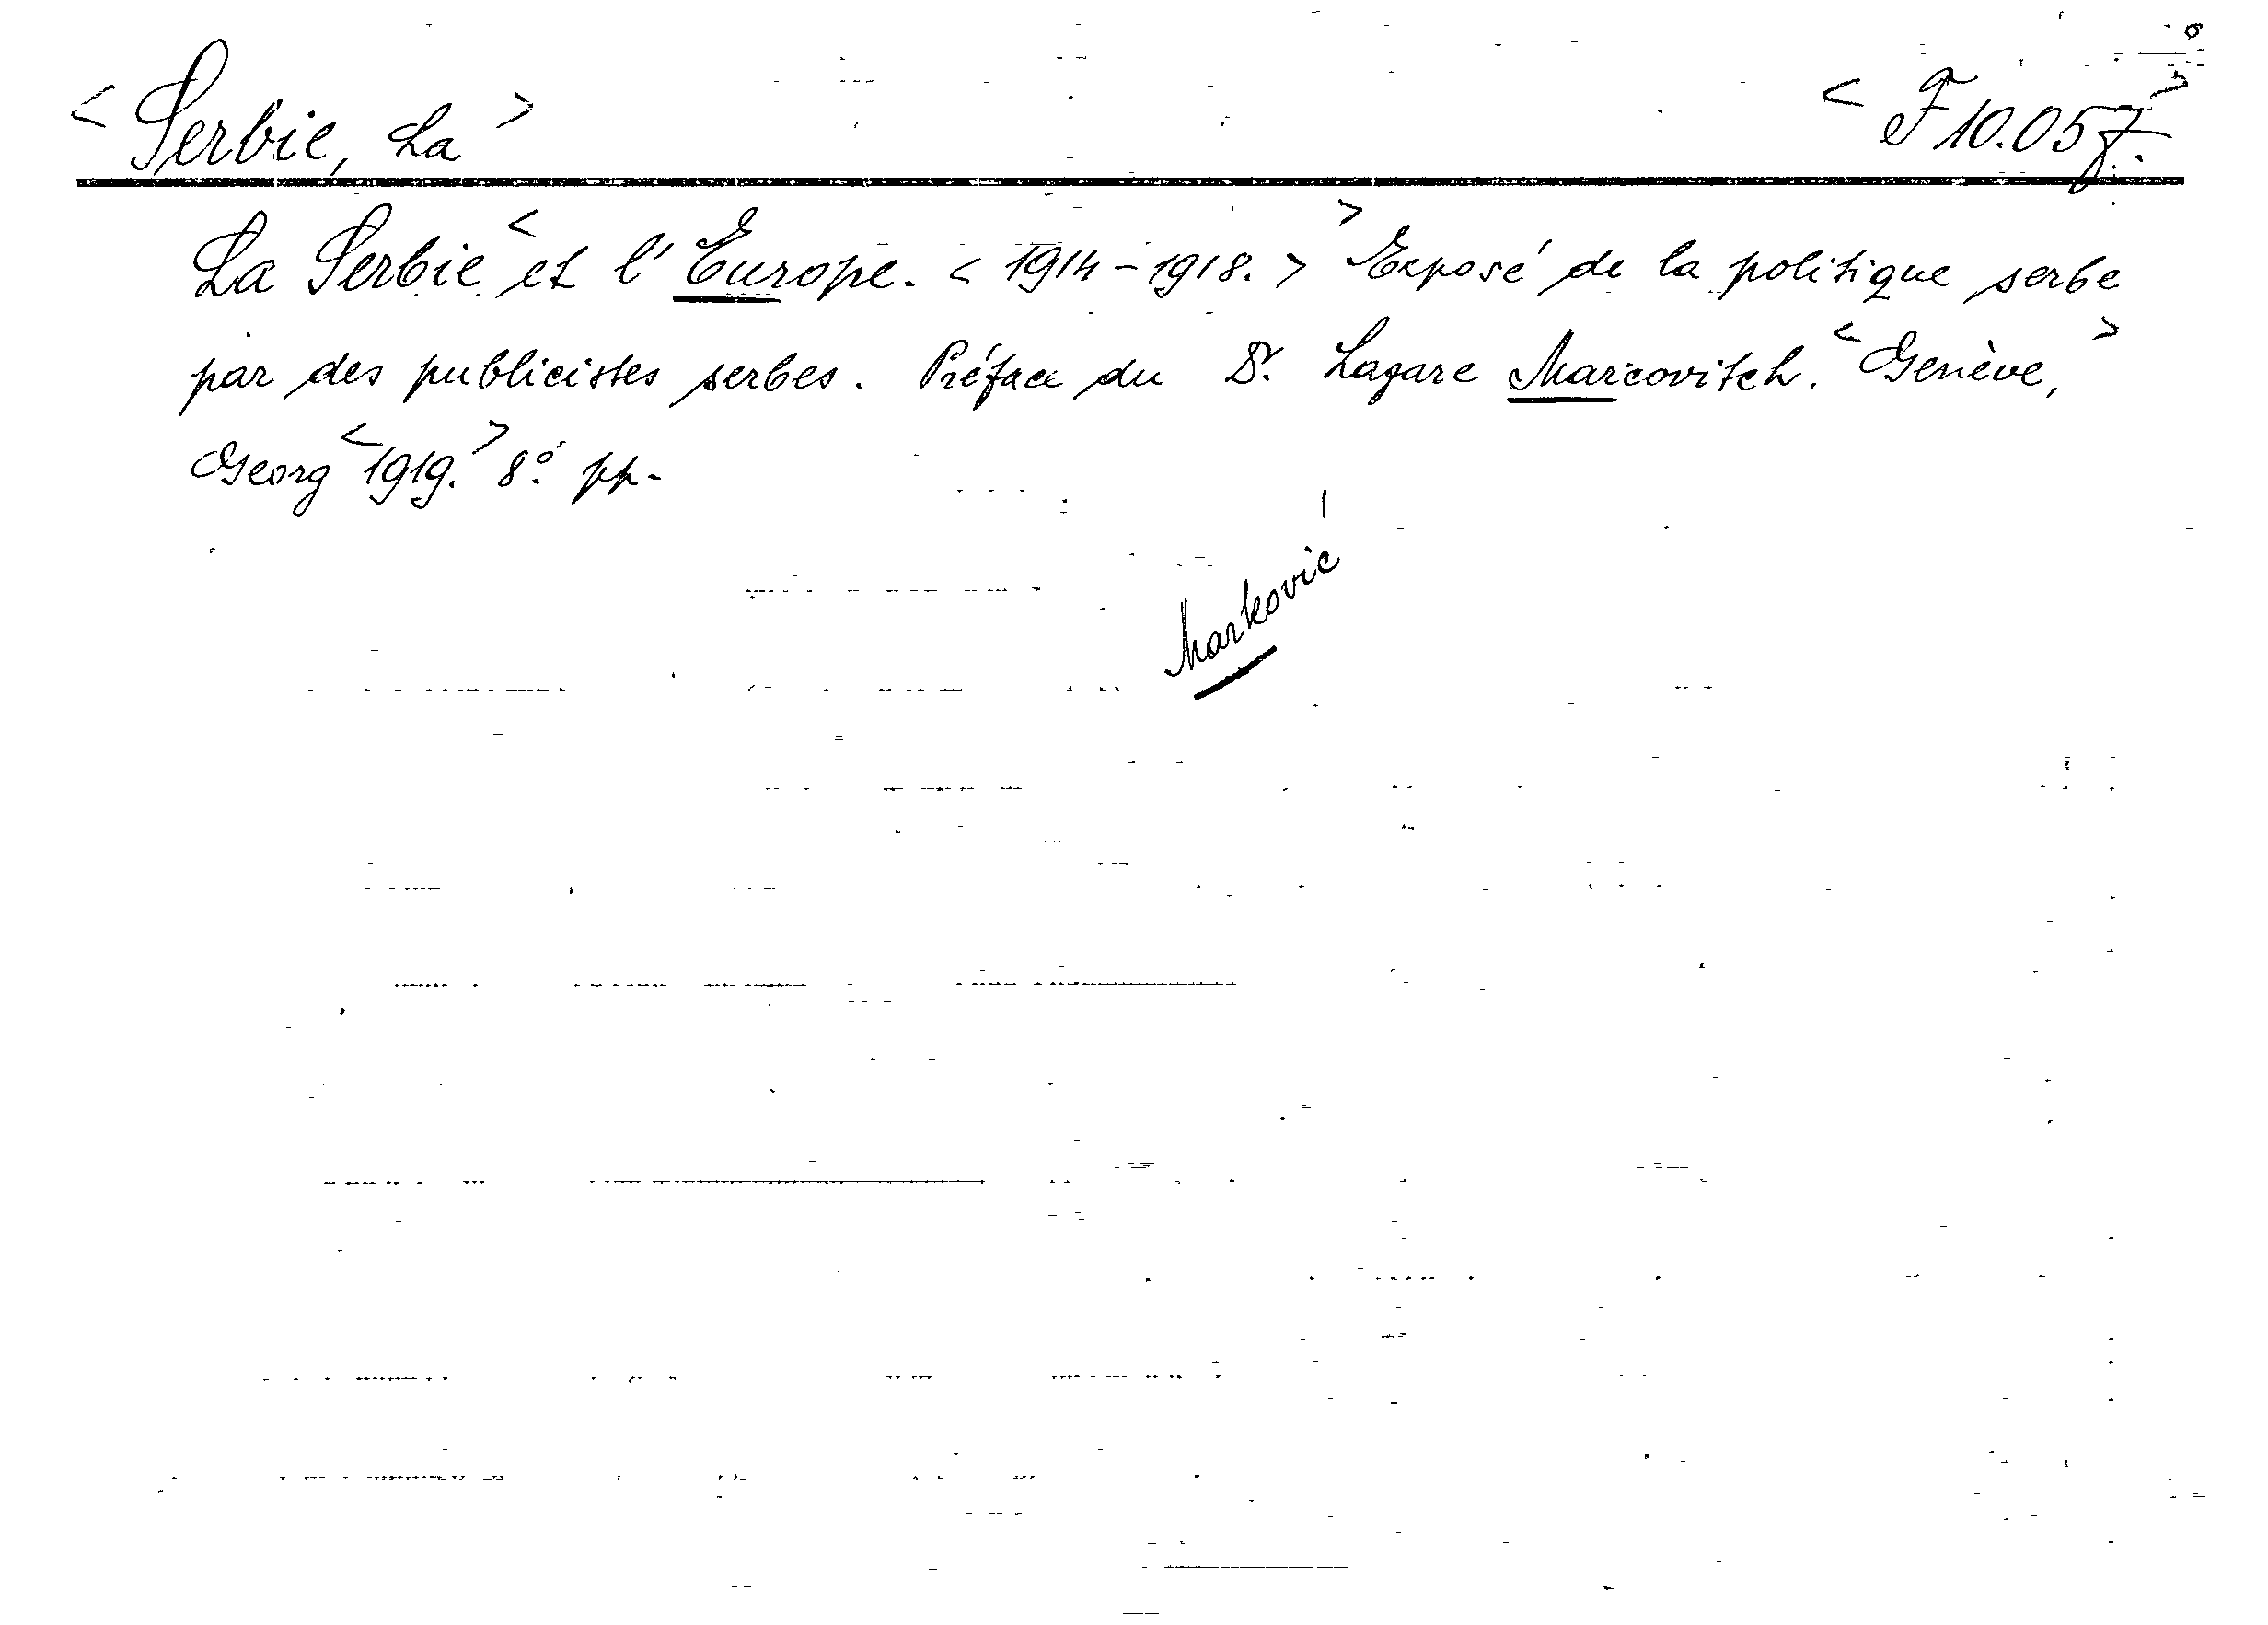 < Serbie, La > < F 10.057. >
La Serbie < et l'Europe. < 1914-1918. > > Exposé de la politique serbe
par des publicistes serbes. Préface du Dr. Lazare Marcovitch. < Genève, >
Georg < 1919. > 8° pp-
Marković